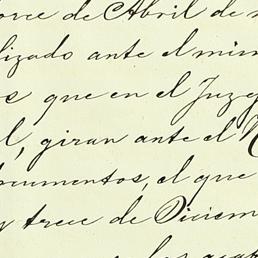 orce de Abril de
lizado ante el mism
os que en el Juzg
l, giran ante el
ocumentos, el que
y trece de Diciem